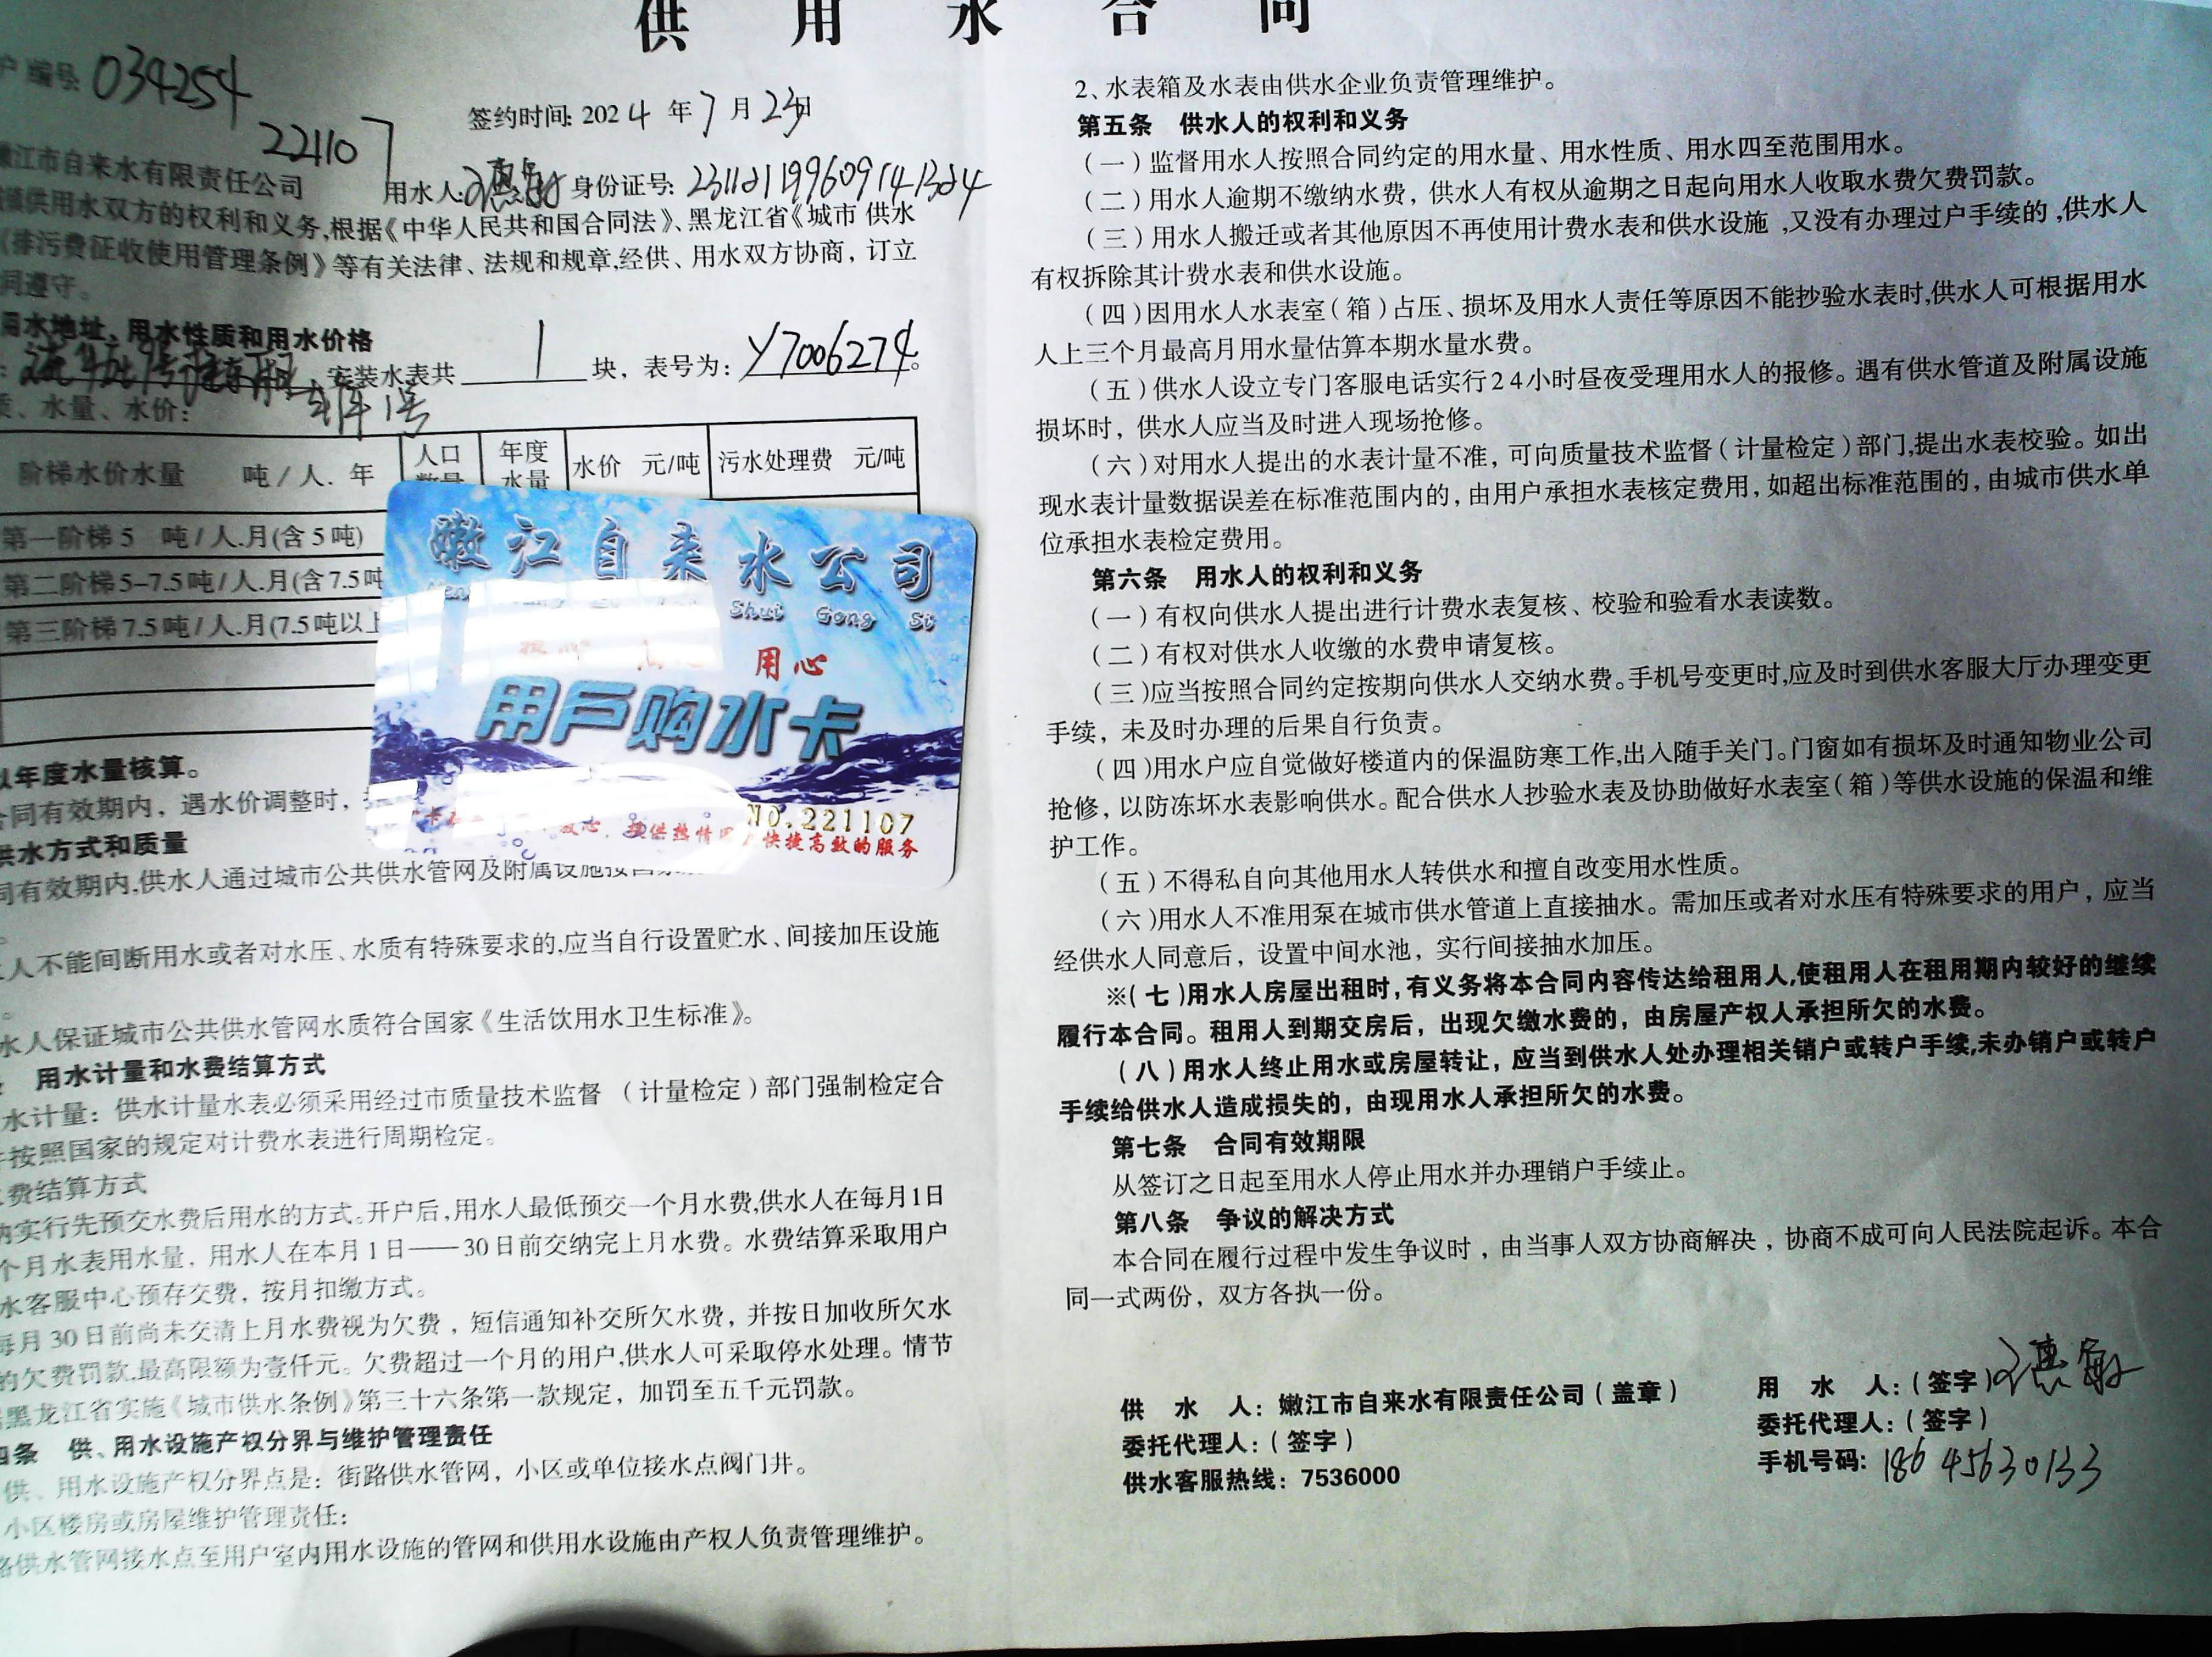 供用水合同
户编号 034254
221107
签约时间: 2024年7月23日
嫩江市自来水有限责任公司
用水人: 惠敏 身份证号:
供用水双方的权利和义务,根据《中华人民共和国合同法》、黑龙江省《城市 供水
《排污费征收使用管理条例》等有关法律、法规和规章,经供、用水双方协商,订立
同遵守。
用水地址,用水性质和用水价格
安装水表共 1 块,表号为: Y7006274。
1号
质、水量、水价:
阶梯水价水量 吨/人.年 人口数量 年度水量 水价 元/吨 污水处理费 元/吨
第一阶梯5 吨/人.月(含5吨)
第二阶梯5-7.5吨/人.月(含7.5吨
第三阶梯7.5吨/人.月(7.5吨以上
嫩江自来水公司
Shui Gong Si
用心
用户购水卡
NO.221107
提供热情 快捷高效的服务
以年度水量核算。
合同有效期内,遇水价调整时,
供水方式和质量
同有效期内,供水人通过城市公共供水管网及附属设施按
人不能间断用水或者对水压、水质有特殊要求的,应当自行设置贮水、间接加压设施
。
水人保证城市公共供水管网水质符合国家《生活饮用水卫生标准》。
用水计量和水费结算方式
水计量:供水计量水表必须采用经过市质量技术监督 (计量检定)部门强制检定合
按照国家的规定对计费水表进行周期检定。
费结算方式
实行先预交水费后用水的方式。开户后,用水人最低预交一个月水费,供水人在每月1日
个月水表用水量,用水人在本月1日——30日前交纳完上月水费。水费结算采取用户
水客服中心预存交费,按月扣缴方式。
每月30日前尚未交清上月水费视为欠费,短信通知补交所欠水费,并按日加收所欠水
的欠费罚款,最高限额为壹仟元。欠费超过一个月的用户,供水人可采取停水处理。情节
黑龙江省实施《城市供水条例》第三十六条第一款规定,加罚至五千元罚款。
四条 供、用水设施产权分界与维护管理责任
供、用水设施产权分界点是:街路供水管网,小区或单位接水点阀门井。
小区楼房或房屋维护管理责任:
路供水管网接水点至用户室内用水设施的管网和供用水设施由产权人负责管理维护。
2、水表箱及水表由供水企业负责管理维护。
第五条 供水人的权利和义务
(一)监督用水人按照合同约定的用水量、用水性质、用水四至范围用水。
(二)用水人逾期不缴纳水费,供水人有权从逾期之日起向用水人收取水费欠费罚款。
(三)用水人搬迁或者其他原因不再使用计费水表和供水设施,又没有办理过户手续的,供水人
有权拆除其计费水表和供水设施。
(四)因用水人水表室(箱)占压、损坏及用水人责任等原因不能抄验水表时,供水人可根据用水
人上三个月最高月用水量估算本期水量水费。
(五)供水人设立专门客服电话实行24小时昼夜受理用水人的报修。遇有供水管道及附属设施
损坏时,供水人应当及时进入现场抢修。
(六)对用水人提出的水表计量不准,可向质量技术监督(计量检定)部门,提出水表校验。如出
现水表计量数据误差在标准范围内的,由用户承担水表核定费用,如超出标准范围的,由城市供水单
位承担水表检定费用。
第六条 用水人的权利和义务
(一)有权向供水人提出进行计费水表复核、校验和验看水表读数。
(二)有权对供水人收缴的水费申请复核。
(三)应当按照合同约定按期向供水人交纳水费。手机号变更时,应及时到供水客服大厅办理变更
手续,未及时办理的后果自行负责。
(四)用水户应自觉做好楼道内的保温防寒工作,出入随手关门。门窗如有损坏及时通知物业公司
抢修,以防冻坏水表影响供水。配合供水人抄验水表及协助做好水表室(箱)等供水设施的保温和维
护工作。
(五)不得私自向其他用水人转供水和擅自改变用水性质。
(六)用水人不准用泵在城市供水管道上直接抽水。需加压或者对水压有特殊要求的用户,应当
经供水人同意后,设置中间水池,实行间接抽水加压。
※(七)用水人房屋出租时,有义务将本合同内容传达给租用人,使租用人在租用期内较好的继续
履行本合同。租用人到期交房后,出现欠缴水费的,由房屋产权人承担所欠的水费。
(八)用水人终止用水或房屋转让,应当到供水人处办理相关销户或转户手续,未办销户或转户
手续给供水人造成损失的,由现用水人承担所欠的水费。
第七条 合同有效期限
从签订之日起至用水人停止用水并办理销户手续止。
第八条 争议的解决方式
本合同在履行过程中发生争议时,由当事人双方协商解决,协商不成可向人民法院起诉。本合
同一式两份,双方各执一份。
供 水 人:嫩江市自来水有限责任公司(盖章)
委托代理人:(签字)
供水客服热线:7536000
用 水 人:(签字) 惠敏
委托代理人:(签字)
手机号码: 18645630133